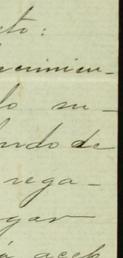 to:
cimien-
lo su-
ando de
rega-
gar
á acep